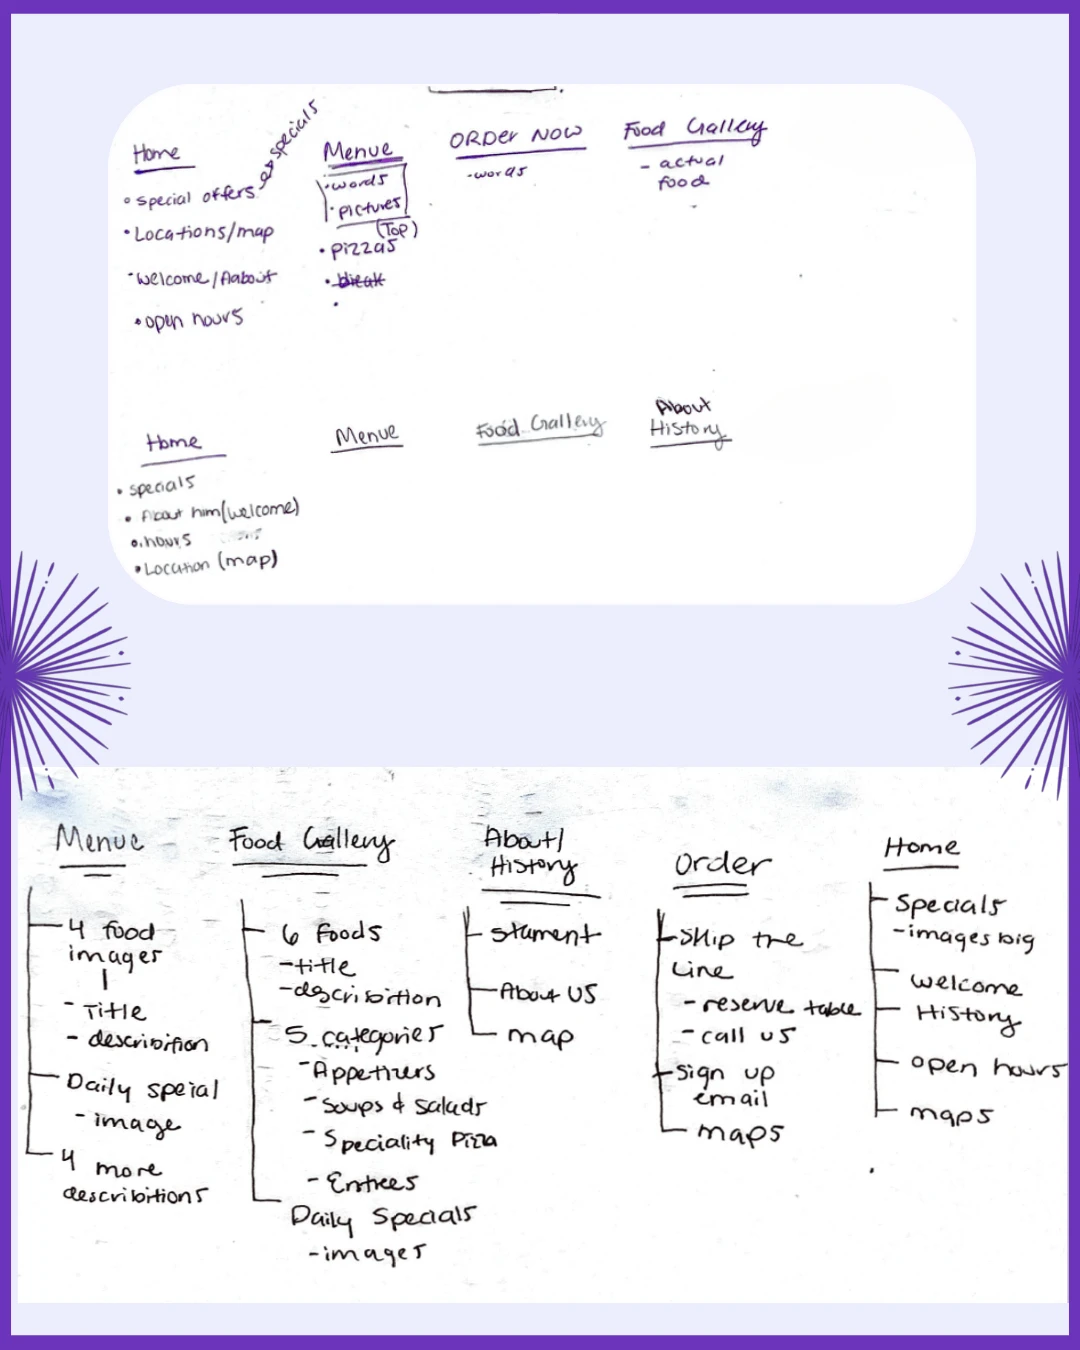 Home
• special offers → specials
• Locations/map
• Welcome/Aabout
• open hours
Menue
• words
• pictures
(Top)
• pizzas
• break
ORDer NOW
• words
Food Gallery
- actual
food
Home
• specials
• About him (welcome)
• hours
• Location (map)
Menue
Food Gallery
About
History
Menue
4 food
images
- Title
- describition
Daily speial
- image
4 more
describitions
Food Gallery
6 Foods
- title
- describition
5 categories
- Appetizers
- Soups & Salads
- Speciality Pizza
- Entrees
Daily Specials
- images
About/
History
stament
About US
map
Order
Skip the
Line
- reserve table
- call us
Sign up
email
maps
Home
Specials
- images big
welcome
History
open hours
maps